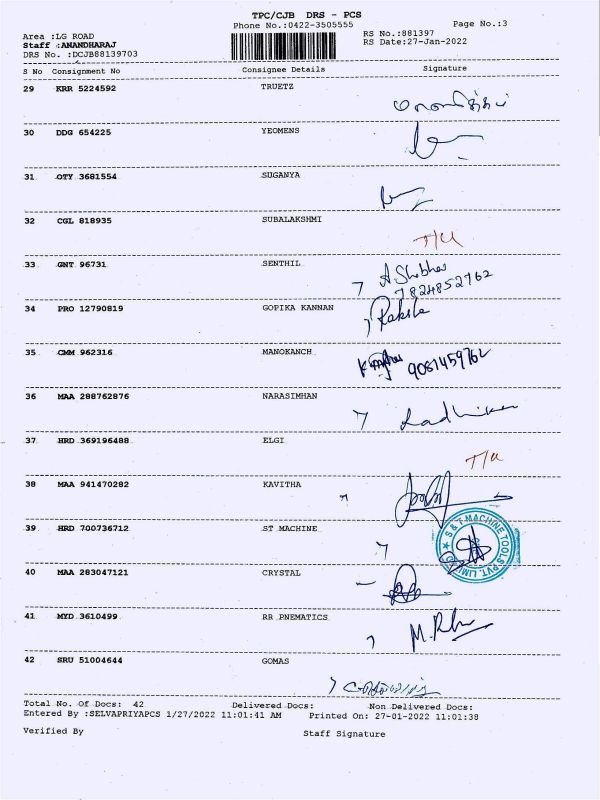 TPC/CJB DRS - PCS
Phone No.:0422-3505555
Page No.:3
Area :LG ROAD
RS No.:881397
Staff :ANANDHARAJ
RS Date:27-Jan-2022
DRS No. :DCJB88139703
S No Consignment No Consignee Details Signature
29 KRR 5224592 TRUETZ
30 DDG 654225 YEOMENS
31 OTY 3681554 SUGANYA
32 CGL 818935 SUBALAKSHMI
T/U
33 GNT 96731 SENTHIL
A Shobha
7824852762
34 PRO 12790819 GOPIKA KANNAN
35 CMM 962316 MANOKANCH
9081459762
36 MAA 288762876 NARASIMHAN
Radhika
37 HRD 369196488 ELGI
T/U
38 MAA 941470282 KAVITHA
39 HRD 700736712 ST MACHINE
S & T MACHINE TOOLS PVT. LIMITED
40 MAA 283047121 CRYSTAL
41 MYD 3610499 RR PNEMATICS
42 SRU 51004644 GOMAS
Total No. Of Docs: 42 Delivered Docs: Non Delivered Docs:
Entered By :SELVAPRIYAPCS 1/27/2022 11:01:41 AM Printed On: 27-01-2022 11:01:38
Verified By Staff Signature